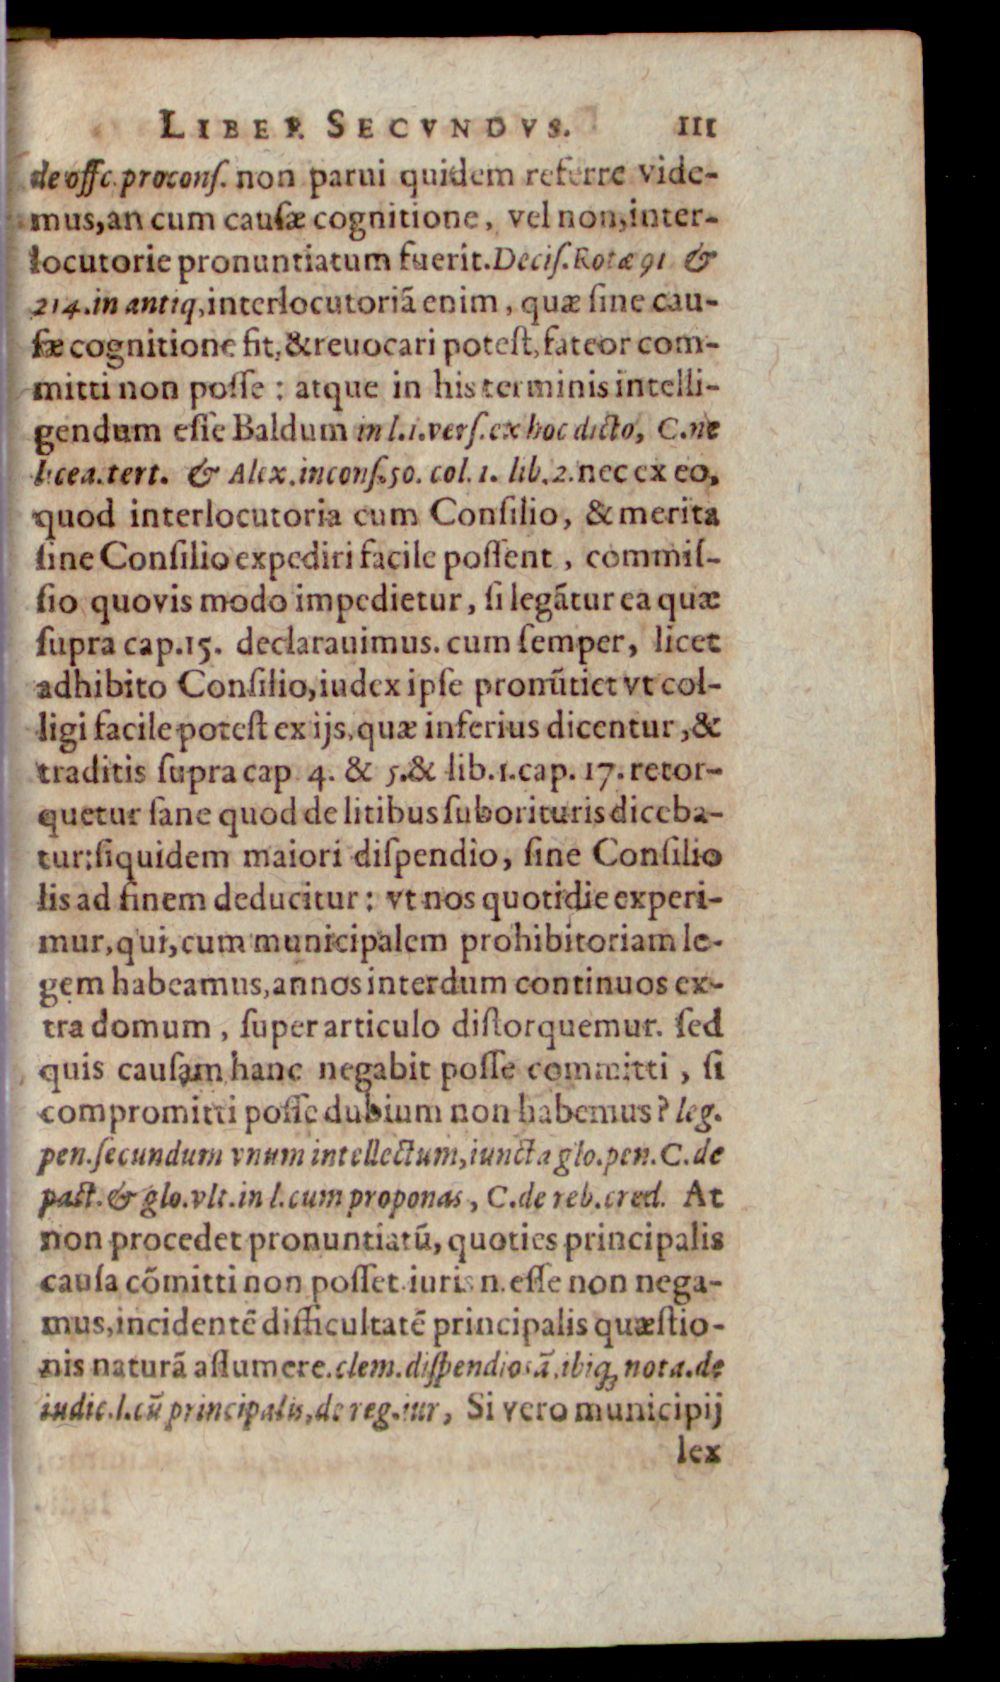 LIBER SECVNDVS. 111
de offc. proconſ. non parui quidem referre vide-
mus, an cum cauſæ cognitione, vel non, inter-
locutorie pronuntiatum fuerit. Deciſ. Rotæ 91 &
214. in antiq, interlocutoriã enim, quæ ſine cau-
ſæ cognitione fit, & reuocari poteſt, fateor com-
mitti non poſſe : atque in his terminis intelli-
gendum eſſe Baldum in l.1. verſ. ex hoc dicto, C. ne
licea. tert. & Alex. in conſ. 50. col. 1. lib. 2. nec ex eo,
quod interlocutoria cum Conſilio, & merita
ſine Conſilio expediri facile poſſent, commiſ-
ſio quovis modo impedietur, ſi legãtur ea quæ
ſupra cap. 15. declarauimus. cum ſemper, licet
adhibito Conſilio, iudex ipſe pronũtiet vt col-
ligi facile poteſt ex ijs, quæ inferius dicentur, &
traditis ſupra cap 4. & 5. & lib. 1. cap. 17. retor-
quetur ſane quod de litibus ſuborituris diceba-
tur; ſiquidem maiori diſpendio, ſine Conſilio
lis ad finem deducitur : vt nos quotidie experi-
mur, qui, cum municipalem prohibitoriam le-
gem habeamus, annos interdum continuos ex-
tra domum, ſuper articulo diſtorquemur. ſed
quis cauſam hanc negabit poſſe committi, ſi
compromitti poſſe dubium non habemus? leg.
pen. ſecundum vnum intellectum, iuncta glo. pen. C. de
pact. & glo. vlt. in l. cum proponas, C. de reb. cred. At
non procedet pronuntiatũ, quoties principalis
cauſa cõmitti non poſſet. iuris n. eſſe non nega-
mus, incidentẽ difficultatẽ principalis quæſtio-
nis naturã aſſumere. clem. diſpendioſã, ibiq; nota. de
iudic. l. cũ principalis, de reg. iur, Si vero municipij
lex